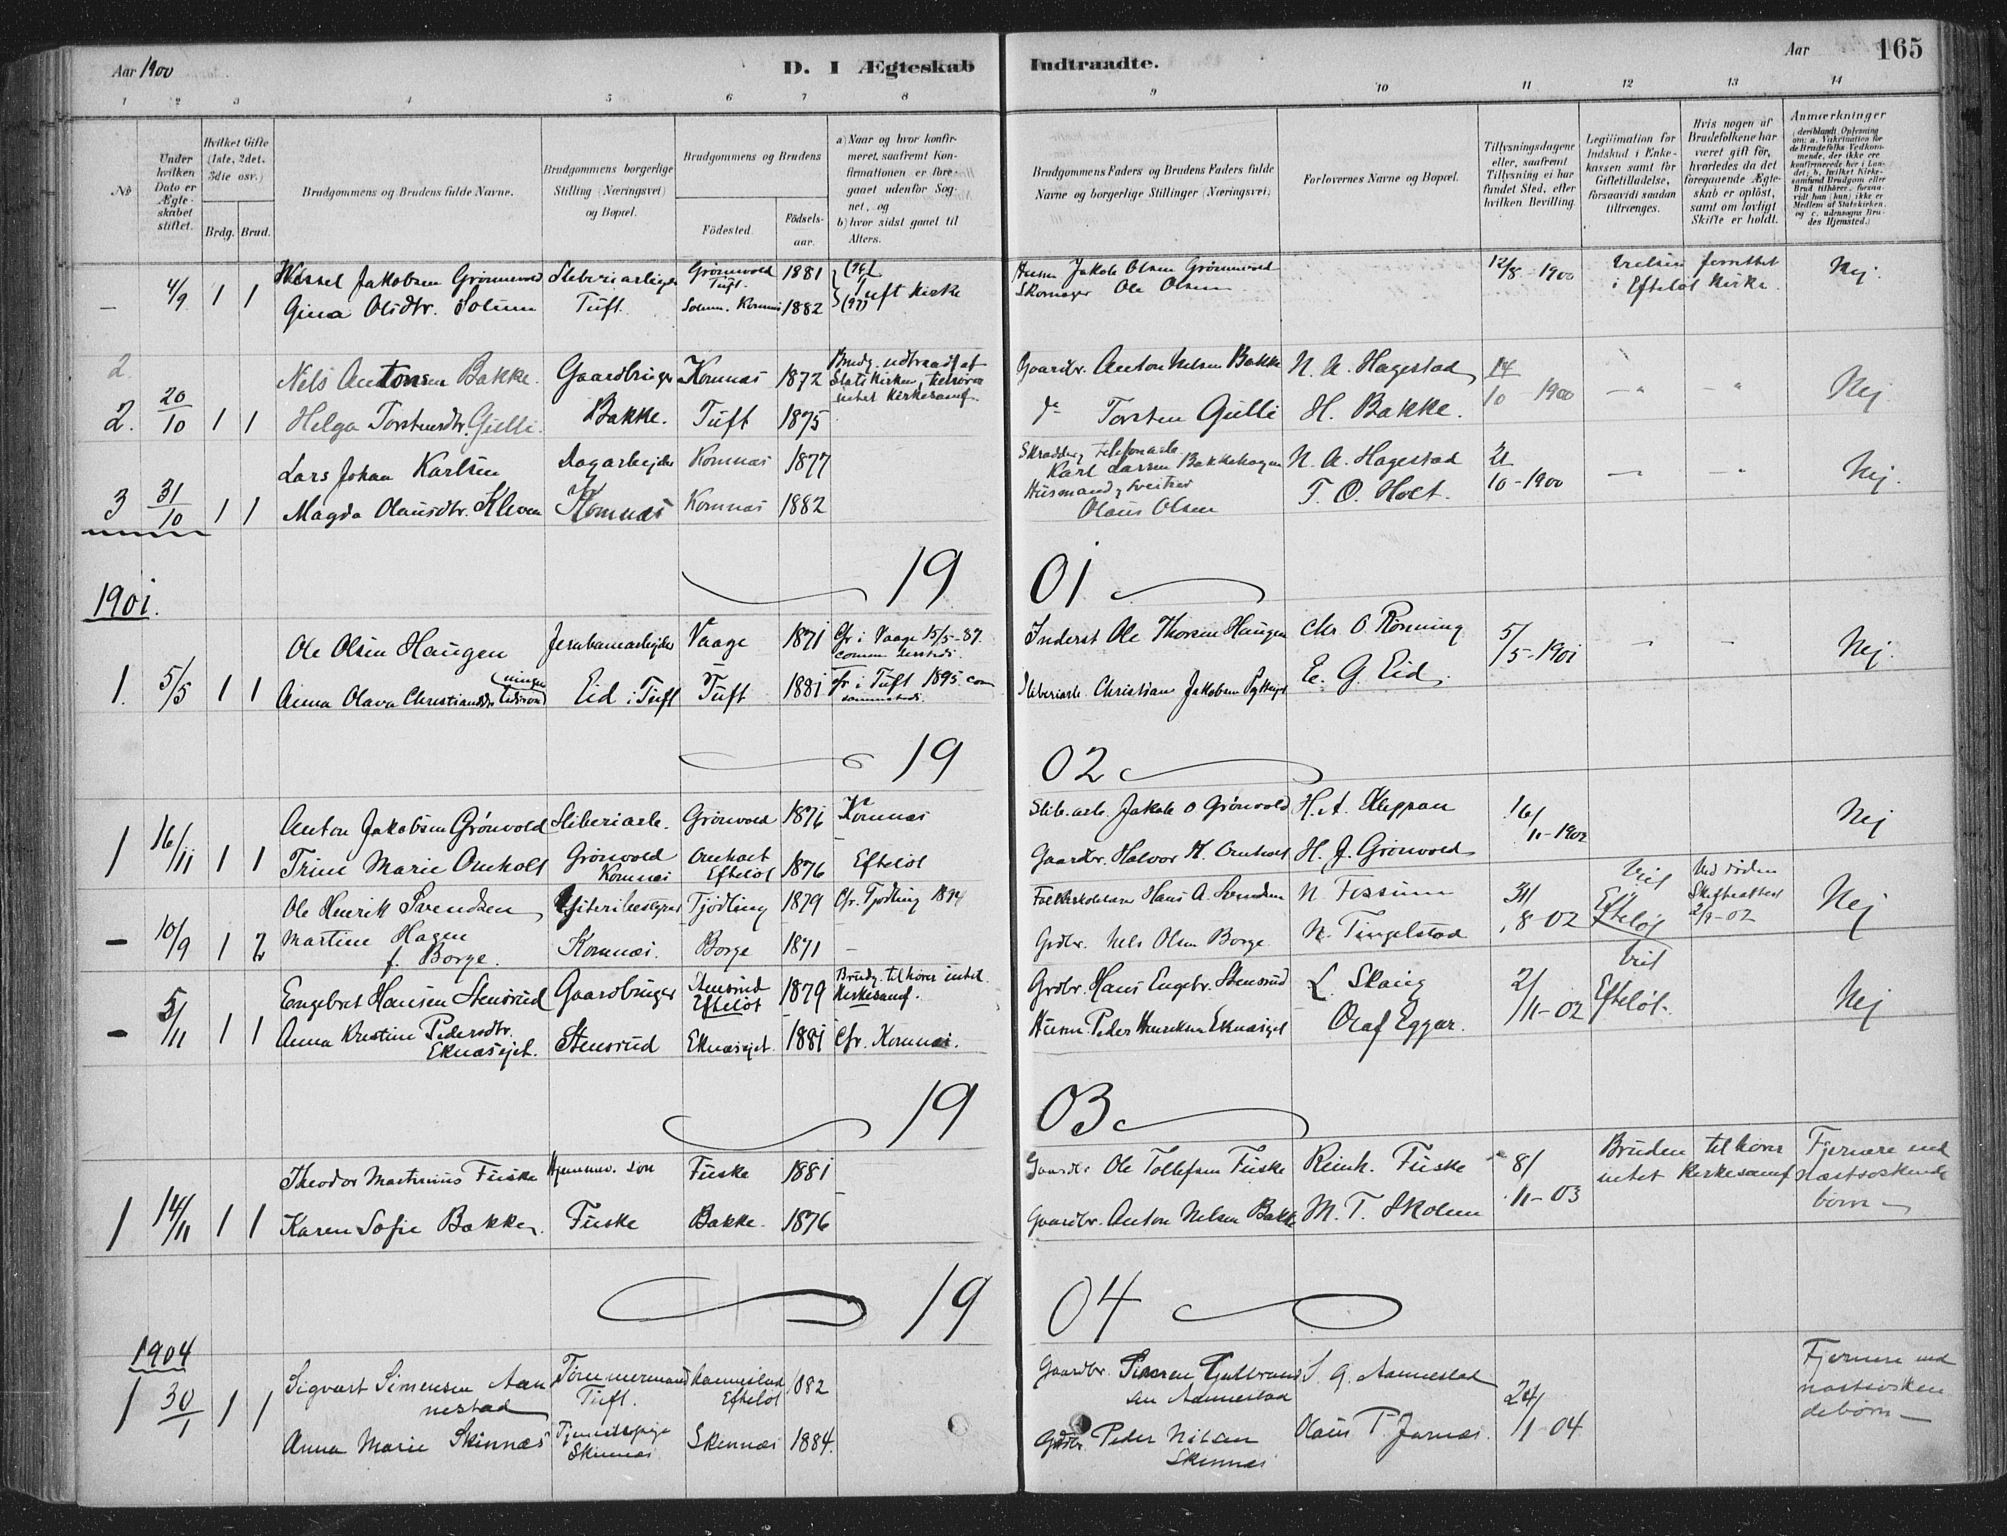 Aar 1900
D. I Ægteskab Indtraadte.
Aar
165
1 2 3 4 5 6 7 8 9 10 11 12 13 14
No
Under hvilken Dato er Ægteskabet stiftet.
Hvilket Gifte (1ste, 2det, 3die osv.)
Brdg. Brud.
Brudgommens og Brudens fulde Navne.
Brudgommens borgerlige Stilling (Næringsvei) og Bopæl.
Brudgommens og Brudens
Födested.
Födselsaar.
a) Naar og hvor konfirmeret, saafremt Konfirmationen er foregaaet udenfor Sognet, og
b) hvor sidst gaaet til Alters.
Brudgommens Faders og Brudens Faders fulde Navne og borgerlige Stillinger (Næringsvei)
Forlovernes Navne og Bopæl.
Tillysningsdagene eller, saafremt Tillysning ei har fundet Sted, efter hvilken Bevilling.
Legitimation for Indskud i Enkekassen samt for Giftetilladelse, forsaavidt saadan tiltrænges.
Hvis nogen af Brudefolkene har været gift för, hvorledes da det foregaaende Ægteskab er oplöst, samt om lovligt Skifte er holdt.
Anmærkninger
– 4/9 1 1 Wessel Jakobsen Grönnvold Sliberiarbeider Grönnvold Tuft. 1881 Husm Jakob Olsen Grönnvold 12/8 - 1900 Vielsen forrettet i Efteløt Kirke. Nej.
Gina Olsdtr. Solum Tuft. Solum. Komnæs 1882 Tuft Kirke Skomager Ole Olsen
2
Nels Antonsen Bakke. Gaardbruger Komnæs 1872 Brudg. udtraadt af Statskirken, tilhører intet Kirkesamf. Gaardbr. Anton Nelsen Bakke N. A. Hagestad 14/10 - 1900 –"– –"– Nej
2. 20/10 1 1 Helga Torstensdtr. Gulli. Bakke. Tuft 1875 do Torsten Gulli H. Bakke.
Lars Johan Karlsen Dagarbejder Komnæs 1877 Karl Larsen Bakkehagen N. A. Hagestad 21/10 - 1900 –"– –"– Nej.
3 31/10 1 1 Magda Olausdtr. Kleven Komnæs Komnæs 1882 Olaus Olsen T. O. Holt.
19 01
1901.
Ole Olsen Haugen Jernbanearbejder Vaage 1871 Cfr i Vaage 15/5-87. Inderst Ole Thorsen Haugen Chr O. Rönning 5/5 - 1901 – – Nej.
1. 5/5 1 1 Anna Olava Christiansdtr Eid i Tuft Tuft 1881 Cfr i Tuft 1895 Sliberiarb. Christian Jakobsen E. G. Eid.
19 02
Anton Jakobsen Grönvold Sliberiarb. Grönvold 1876 Komnæs Slib.arb. Jakob O Grönvold H. A. Kleppan 16/11 - 1902 Nej
1 16/11 1 1 Trine Marie Omholt Grönvold Komnæs Omholt Efteløt 1876 Efteløt Gaardbr. Halvor H. Omholt H. J. Grönvold
Ole Henrik Svendsen Tjödling 1879 Cfr. Tjödling 1894 Hans A. Svendsen N. Fossum 31/8-02 Viet Efteløt Ved döden Skifteattest 2/9-02 Nej
– 10/9 1 2 Martine Hagen f. Borge. Komnæs. Borge 1871 – Grdbr. Nels Olsen Borge N. Tingelstad
Engebret Hansen Stensrud Gaardbruger Stensrud Efteløt 1879 Brudg. tilhører intet Kirkesamf. Grdbr. Hans Engebr. Stensrud L. Skaug 2/11-02 Viet Efteløt. Nej
– 5/11 1 1 Anna Kristine Pedersdtr. Eknæsejet. Stensrud Eknæsejet. 1881 Cfr. Komnæs. Husm. Peder Henriksen Eknæsejet Olaf Eggar.
19 03
Theodor Martinius Fuske Hjemmev. sön Fuske 1881 Gaardbr Ole Tollefsen Fuske Reinh. Fuske 8/11-03 Bruden tilhører intet Kirkesamf Fjernere end Næstsöskendebörn
1 14/11 1 1 Karen Sofie Bakke. Fuske Bakke. 1876 – Gaardbr. Anton Nelsen Bakke M. T. Skolem
19 04
1904
1 30/1 1 1 Sigvart Simensen Aannestad Tömmermand Tuft. Aannestad Efteløt 1882 Gaardbr. Simen Gulbrandsen Aannestad S. G. Aannestad 24/1-04 Fjernere end næstsöskendebörn –
Anna Marie Skinnæs Tjenestepige Skinnæs Skinnæs 1884. Grdbr. Peder Nilsen Skinnæs Olaus P. Jarnæs.